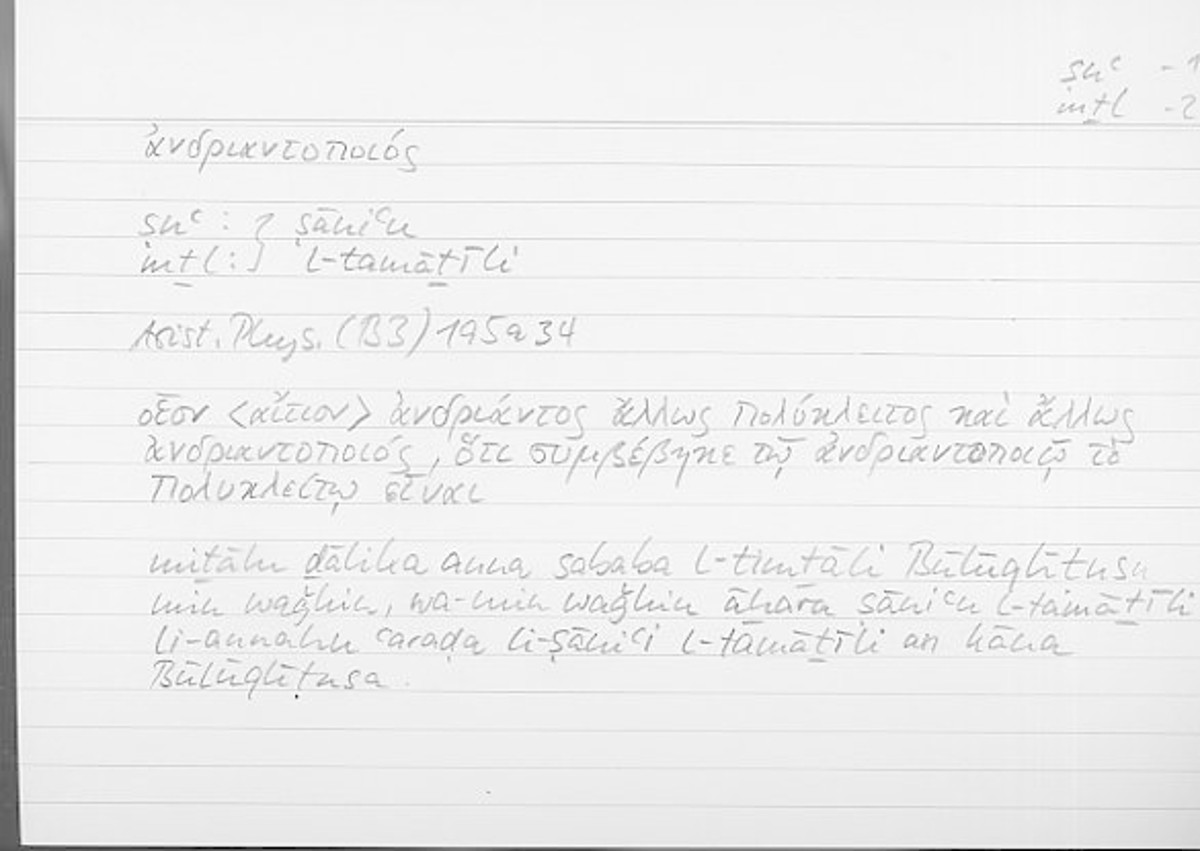 ṣnʿ - 1
mṯl - 2
ἀνδριαντοποιός
ṣnʿ : } ṣāniʿu
mṯl : } l-tamāṯīli
Arist. Phys. (B3) 195a34
οἷον <αἴτιον> ἀνδριάντος ἄλλως Πολύκλειτος καὶ ἄλλως
ἀνδριαντοποιός, ὅτι συμβέβηκε τῷ ἀνδριαντοποιῷ τὸ
Πολυκλείτῳ εἶναι
miṯālu ḏālika anna sababa l-timṯāli Būlūqlīṭusu
min waǧhin, wa-min waǧhin āḫara ṣāniʿu l-tamāṯīli
li-annahu ʿaraḍa li-ṣāniʿi l-tamāṯīli an kāna
Būlūqlīṭusa.